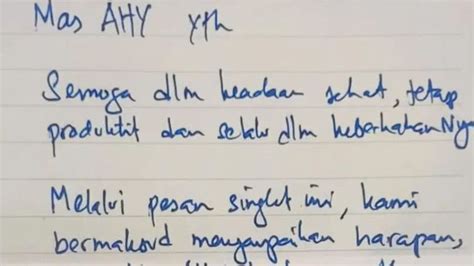 Mas AHY yth
Semoga dlm keadaan sehat, tetap
produktif dan selalu dlm keberkahanNya
Melalui pesan singkat ini, kami
bermaksud menyampaikan harapan,